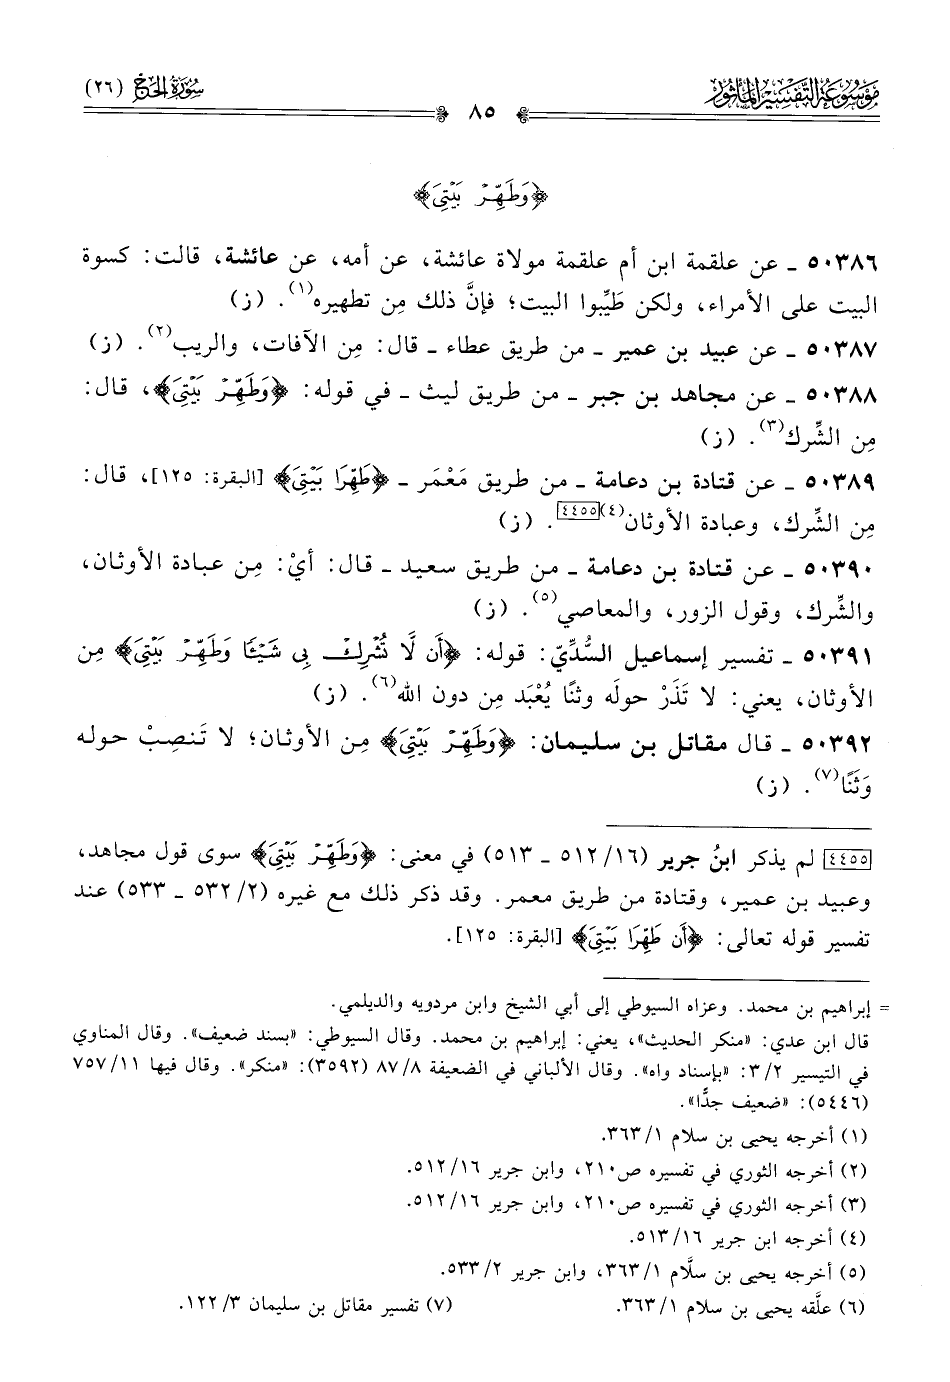 موسوعة التفسير المأثور
سورة الحج (٢٦)
٨٥
﴿وَطَهِّرْ بَيْتِيَ﴾
٥٠٣٨٦ ـ عن علقمة ابن أم علقمة مولاة عائشة، عن أمه، عن عائشة، قالت: كسوة
البيت على الأمراء، ولكن طَيِّبوا البيت؛ فإنَّ ذلك مِن تطهيره(١). (ز)
٥٠٣٨٧ ـ عن عبيد بن عمير ـ من طريق عطاء ـ قال: مِن الآفات، والريب(٢). (ز)
٥٠٣٨٨ ـ عن مجاهد بن جبر ـ من طريق ليث ـ في قوله: ﴿وَطَهِّرْ بَيْتِيَ﴾، قال:
مِن الشِّرك(٣). (ز)
٥٠٣٨٩ ـ عن قتادة بن دعامة ـ من طريق مَعْمَر ـ ﴿طَهِّرَا بَيْتِيَ﴾ [البقرة: ١٢٥]، قال:
مِن الشِّرك، وعبادة الأوثان(٤)[٤٤٥٥]. (ز)
٥٠٣٩٠ ـ عن قتادة بن دعامة ـ من طريق سعيد ـ قال: أيْ: مِن عبادة الأوثان،
والشِّرك، وقول الزور، والمعاصي(٥). (ز)
٥٠٣٩١ ـ تفسير إسماعيل السُّدِّيّ: قوله: ﴿أَن لَّا تُشْرِكْ بِي شَيْئًا وَطَهِّرْ بَيْتِيَ﴾ مِن
الأوثان، يعني: لا تَذَرْ حولَه وثنًا يُعْبَد مِن دون الله(٦). (ز)
٥٠٣٩٢ ـ قال مقاتل بن سليمان: ﴿وَطَهِّرْ بَيْتِيَ﴾ مِن الأوثان؛ لا تَنصِبْ حوله
وَثَنًا(٧). (ز)
[٤٤٥٥] لم يذكر ابنُ جرير (١٦/ ٥١٢ ـ ٥١٣) في معنى: ﴿وَطَهِّرْ بَيْتِيَ﴾ سوى قول مجاهد،
وعبيد بن عمير، وقتادة من طريق معمر. وقد ذكر ذلك مع غيره (٢/ ٥٣٢ ـ ٥٣٣) عند
تفسير قوله تعالى: ﴿أَن طَهِّرَا بَيْتِيَ﴾ [البقرة: ١٢٥].
= إبراهيم بن محمد. وعزاه السيوطي إلى أبي الشيخ وابن مردويه والديلمي.
قال ابن عدي: «منكر الحديث»، يعني: إبراهيم بن محمد. وقال السيوطي: «بسند ضعيف». وقال المناوي
في التيسير ٢/ ٣: «بإسناد واه». وقال الألباني في الضعيفة ٨/ ٨٧ (٣٥٩٢): «منكر». وقال فيها ١١/ ٧٥٧
(٥٤٤٦): «ضعيف جدًّا».
(١) أخرجه يحيى بن سلام ١/ ٣٦٣.
(٢) أخرجه الثوري في تفسيره ص٢١٠، وابن جرير ١٦/ ٥١٢.
(٣) أخرجه الثوري في تفسيره ص٢١٠، وابن جرير ١٦/ ٥١٢.
(٤) أخرجه ابن جرير ١٦/ ٥١٣.
(٥) أخرجه يحيى بن سلَّام ١/ ٣٦٣، وابن جرير ٢/ ٥٣٣.
(٦) علَّقه يحيى بن سلام ١/ ٣٦٣. (٧) تفسير مقاتل بن سليمان ٣/ ١٢٢.